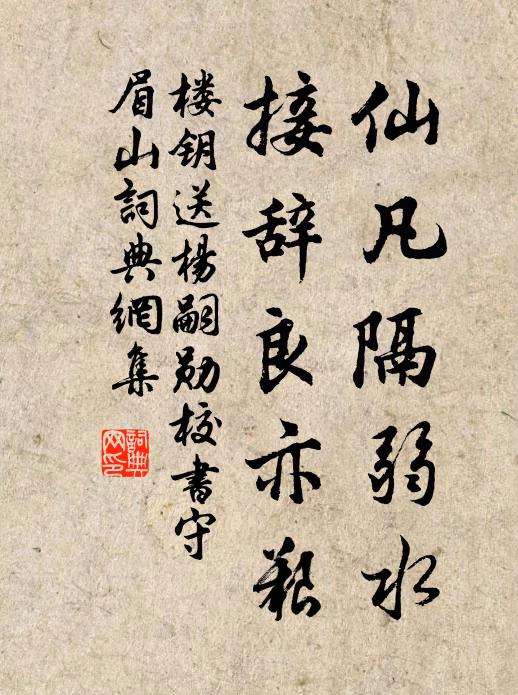 仙凡隔弱水
接辞良亦艰
楼钥送杨嗣勋校书守
眉山詞典網集
詞典网印